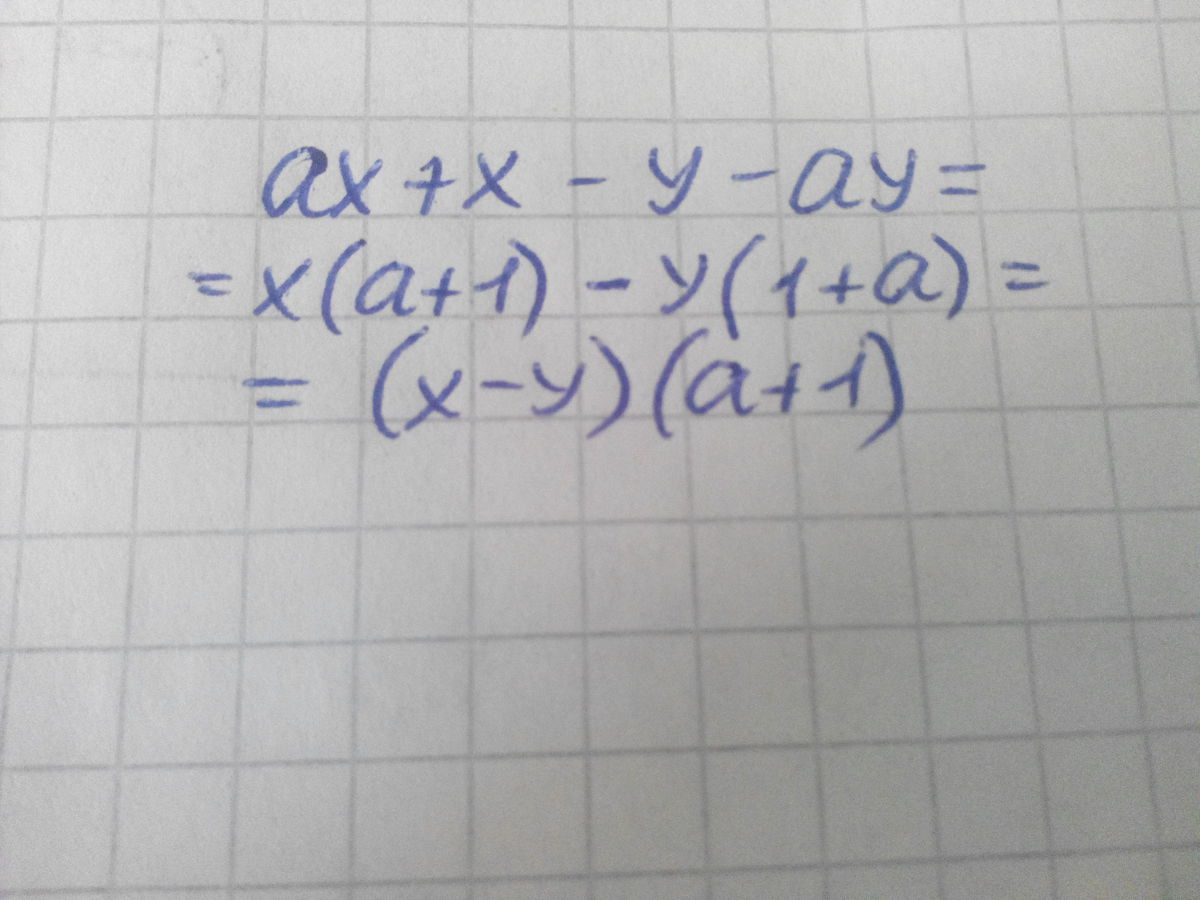 ax + x - y - ay =
= x(a+1) - y(1+a) =
= (x-y)(a+1)